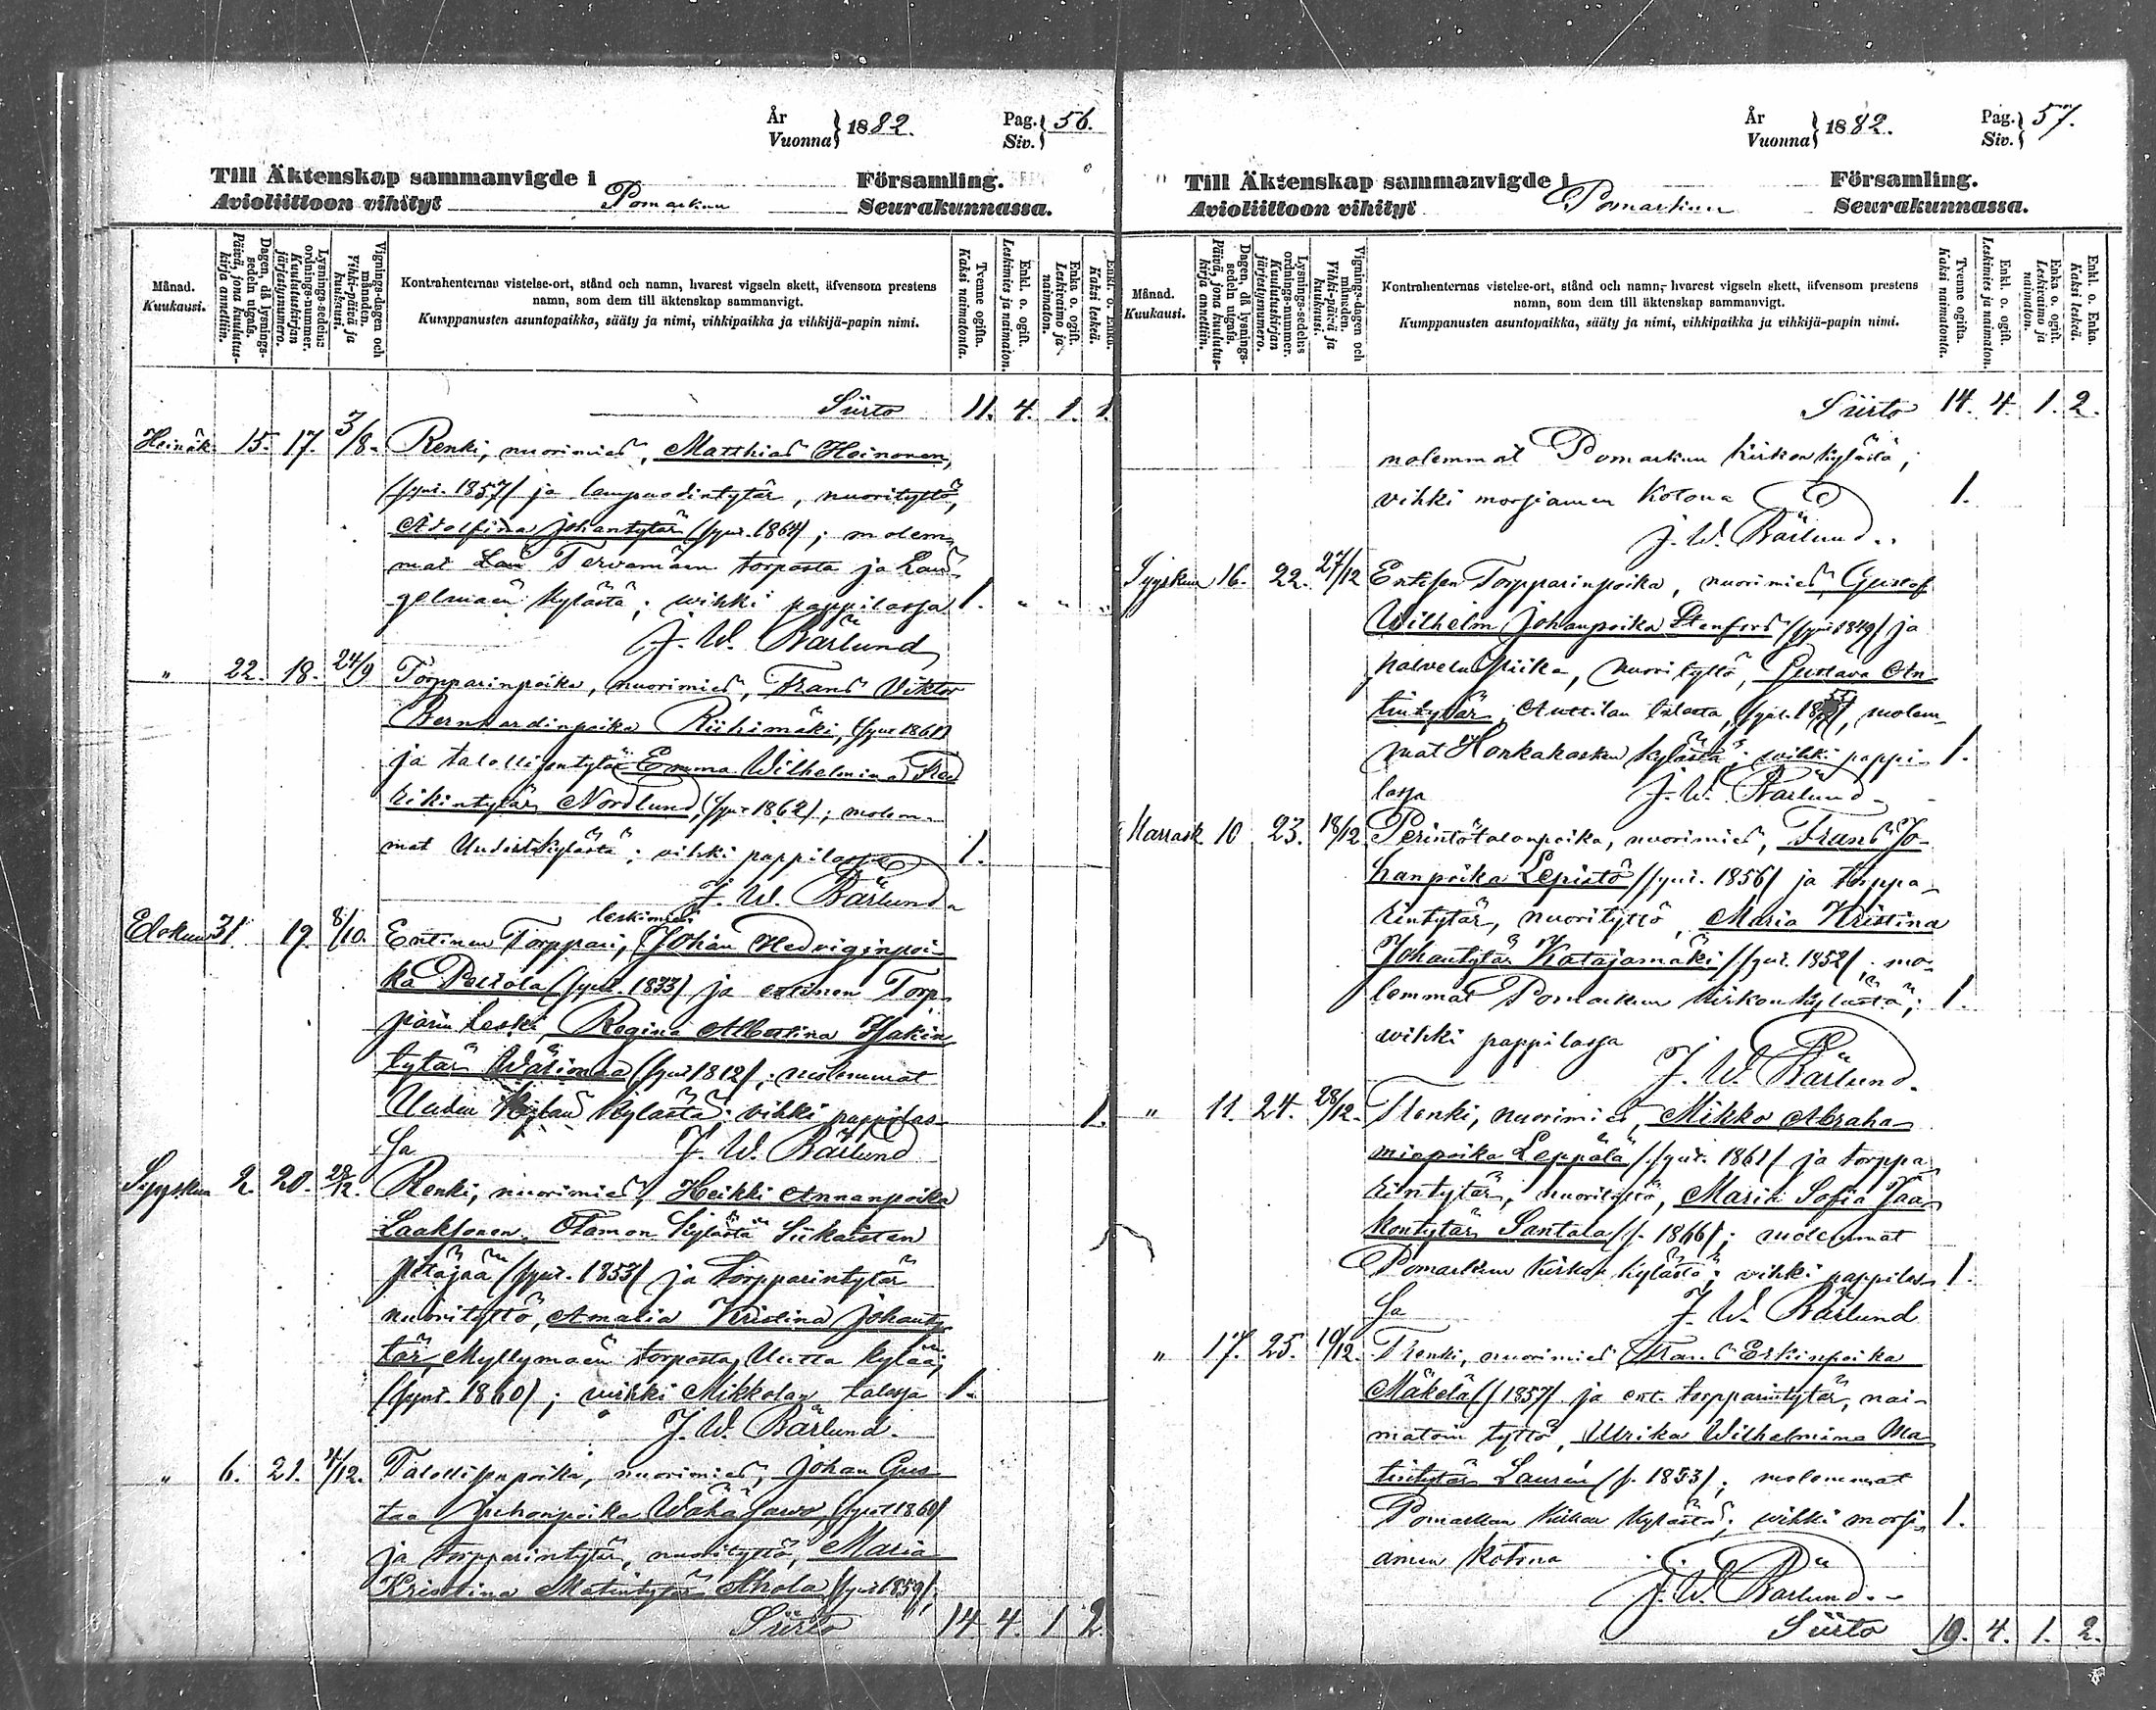 År
Vuonna } 1882.
Pag.
Siv. } 56.
Till Äktenskap sammanvigde i Församling.
Avioliittoon vihityt Pomarkun Seurakunnassa.
Månad.
Kuukausi.
Dagen, då lysnings-
sedeln utgafs.
Päivä, jona kuulutus-
kirja annettiin.
Lysnings-sedelns
ordnings-nummer.
Kuulutuskirjan
järjestysnumero.
Vignings-dagen och
månaden.
Vihki-päivä ja
kuukausi.
Kontrahenternas vistelse-ort, stånd och namn, hvarest vigseln skett, äfvensom prestens
namn, som dem till äktenskap sammanvigt.
Kumppanusten asuntopaikka, sääty ja nimi, vihkipaikka ja vihkijä-papin nimi.
Tvenne ogifta.
Kaksi naimatonta.
Enkl. o. ogift.
Leskimies ja naimaton.
Enka o. ogift.
Leskivaimo ja
naimaton.
Enkl. o. Enka.
Kaksi leskeä.
Siirto 11. 4. 1. 1.
Heinäk. 15. 17. 3/8. Renki, nuorimies, Matthias Heinonen,
(synt. 1857) ja lampuodintytär, nuorityttö,
Adolfina Johantytär (synt. 1864); molem-
mat Lau Tervamäen torpasta ja Lau
gelmäen kylästä; wihki pappilassa 1. " " "
J. W. Bärlund
" 22. 18. 24/9 Torpparinpoika, nuorimies, Frans Viktor
Bernhardinpoika Riihimäki, (synt 1861)
ja talollisentytär Emma Wilhelmina Fred
rikintytär Nordlund, (synt 1862); molem-
mat Uudestakylästä; vihki pappilassa 1.
J. W. Bärlund
leskimies
Elokuu 31 19 8/10. Entinen Torppari, Johan Hedviginpoi-
ka (synt. 1833) ja entinen Torp-
parin leski, Regina Albertina Isakin
tytär (synt 1812); molemmat
Uuden Kylän kylästä; vihki pappilas- 1.
sa J. W. Bärlund
Syyskuu 2. 20. 28/12. Renki, nuorimies, Heikki Annanpoika
Laaksonen, Otamon kylästä Siikaisten
pitäjää (synt. 1853) ja torpparintytär
nuorityttö, Amalia Kristina Johanty-
tär, Myllymäen torpasta, Uutta kylää;
(synt. 1860); wihki Mikkolan talossa 1.
J. W. Bärlund.
" 6. 21. 4/12. Talollisenpoika, nuorimies, Johan Gus-
taa Juhonpoika Wähäsawo (synt 1860)
ja torpparintytär, nuorityttö, Maria
Kristiina Matintytär Ahola (synt 1859);
Siirto 14 4. 1 2.
År
Vuonna } 1882.
Pag.
Siv. } 57.
Till Äktenskap sammanvigde i Församling.
Avioliittoon vihityt Pomarkun Seurakunnassa.
Månad.
Kuukausi.
Dagen, då lysnings-
sedeln utgafs.
Päivä, jona kuulutus-
kirja annettiin.
Lysnings-sedelns
ordnings-nummer.
Kuulutuskirjan
järjestysnumero.
Vignings-dagen och
månaden.
Vihki-päivä ja
kuukausi.
Kontrahenternas vistelse-ort, stånd och namn, hvarest vigseln skett, äfvensom prestens
namn, som dem till äktenskap sammanvigt.
Kumppanusten asuntopaikka, sääty ja nimi, vihkipaikka ja vihkijä-papin nimi.
Tvenne ogifta.
Kaksi naimatonta.
Enkl. o. ogift.
Leskimies ja naimaton.
Enka o. ogift.
Leskivaimo ja
naimaton.
Enkl. o. Enka.
Kaksi leskeä.
Siirto 14. 4. 1. 2.
molemmat Pomarkun Kirkon kylästä;
vihki morsiamen kotona 1.
J. W. Bärlund.
Syyskuu 16. 22. 27/12 Entisen Torpparinpoika, nuorimies, Gustaf
Wilhelm Johanpoika Stenfors (synt 1849) ja
palvelus piika, nuorityttö, Gustava An-
tintytär, Anttilan talosta, (synt. molem-
mat Honkakosken kylästä; wihki pappi- 1.
lassa J. W. Bärlund
Marrask. 10 23. 18/12. Perintötalonpoika, nuorimies, Frans Jo-
hanpoika Lepistö (synt. 1856) ja torppa-
rintytär, nuorityttö, Maria Kristina
Johantytär Katajamäki (synt. 1852); mo-
lemmat Pomarkun kirkonkylästä; 1.
wihki pappilassa
J. W. Bärlund.
" 11. 24. 28/12. Renki, nuorimies, Mikko Abraha-
minpoika Leppälä (synt. 1861) ja torppa-
rintytär, nuorityttö, Maria Sofia Jaa-
kontytär Santala (s. 1866); molemmat
Pomarkun kirkon kylästä; vihki pappilas- 1.
sa J. W. Bärlund
" 17. 25. 10/12. Renki, nuorimies, Frans Erkinpoika
Mäkelä (s 1857) ja ent. torpparintytär, nai-
matoin tyttö, Ulrika Wilhelmina Ma-
tintytär Laurén (s. 1853); molemmat
Pomarkun kirkon kylästä; wihki morsi- 1.
amen kotona
J. W. Bärlund.
Siirto 19. 4. 1. 2.